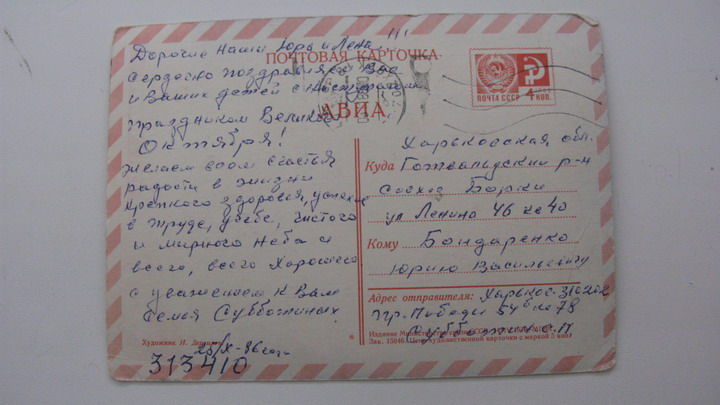 Дорогие наши Юра и Лена!!!
ПОЧТОВАЯ КАРТОЧКА
сердечно поздравляем Вас
и Ваших детей с наступающим
праздником Великого
Октября!
желаем вам счастья
радости в жизни
крепкого здоровья, успехов
в труде, учебе, чистого
и мирного неба и
всего, всего хорошего
с уважением к Вам
семья Субботиных
Художник И.
28/X-86 года
313410
АВИА
ПОЧТА СССР 4 КОП.
Харьковская обл.
Куда Готвальдский р-н
совхоз Борки
ул Ленина 46 кв 40
Кому Бондаренко
Юрию Васильевичу
Адрес отправителя: Харьков-310202
пр. Победы 54б кв 78
Издание
Субботин
Зак. 15046. Цена художественной карточки с маркой 5 коп.